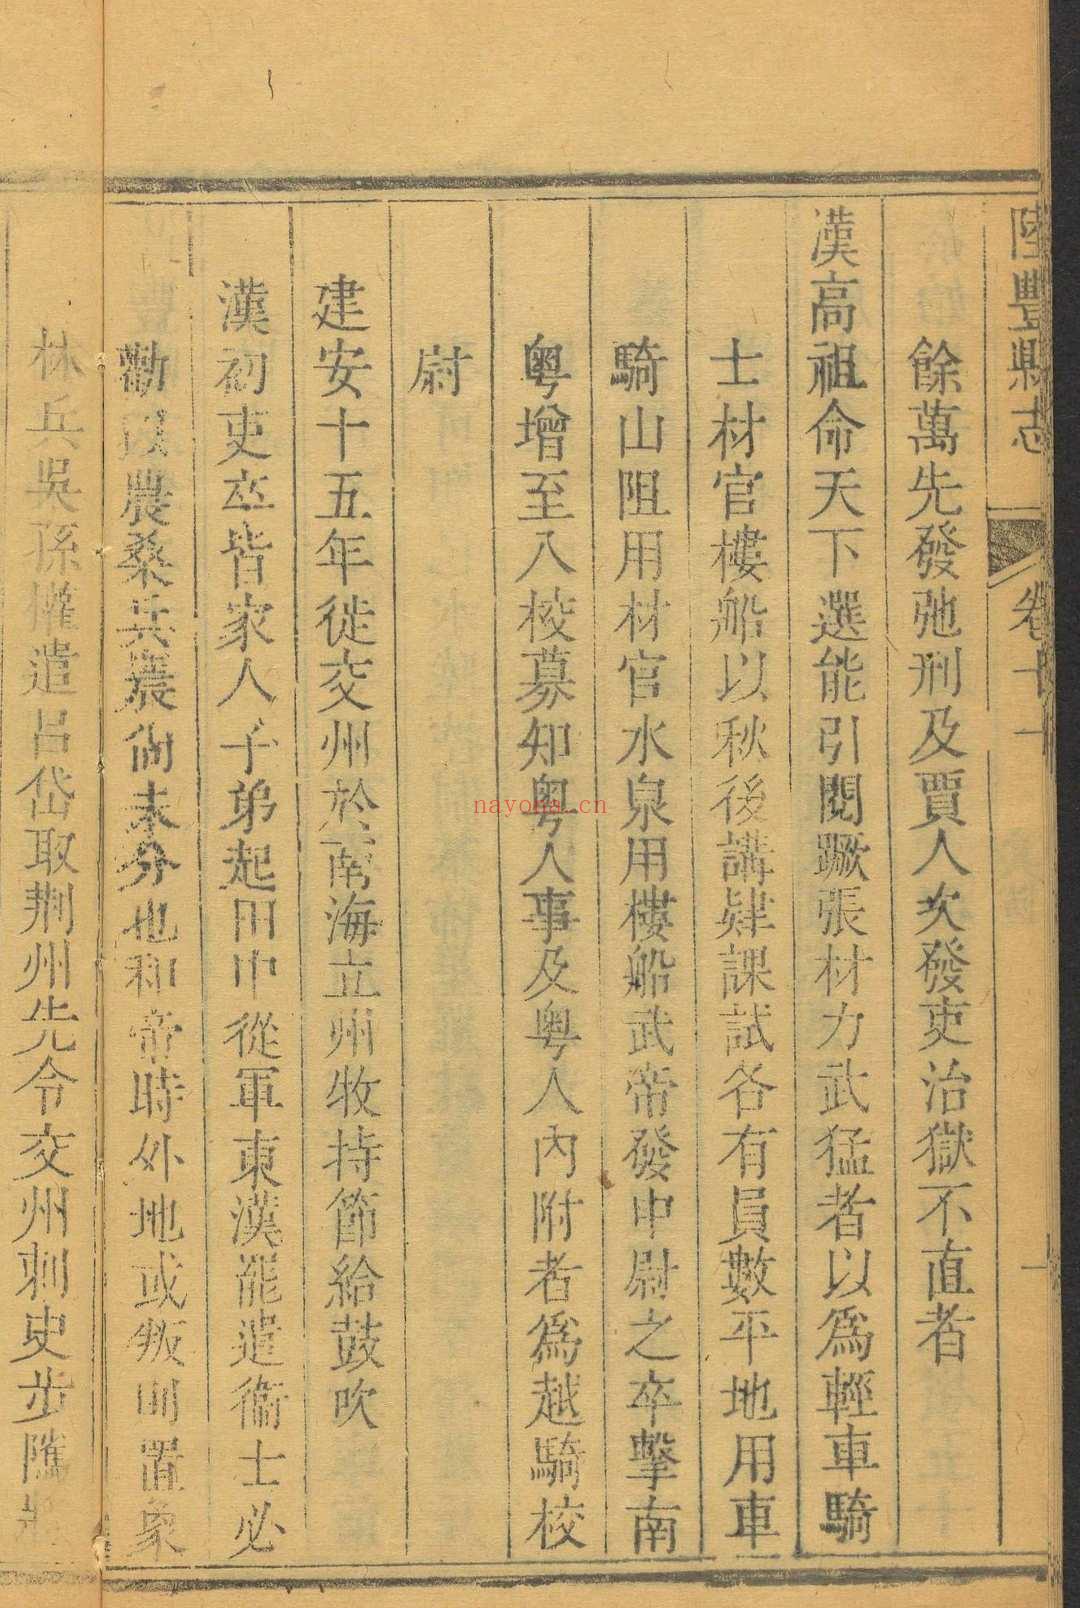 陸豐縣志
卷十一
一
餘萬先發弛刑及賈人次發吏治獄不直者
漢高祖命天下選能引閱蹶張材力武猛者以爲輕車騎
士材官樓船以秋後講肄課試各有員數平地用車
騎山阻用材官水泉用樓船武帝發中尉之卒擊南
粵增至八校募知粵人事及粵人內附者爲越騎校
尉
建安十五年徙交州於南海立州牧持節給鼓吹
漢初吏卒皆家人子弟起田中從軍東漢罷遣衞士必
勸以農桑兵農尙未分也和帝時外地或叛則置象
林兵吳孫權遣呂岱取荆州先令交州刺史步隲
nayona.cn